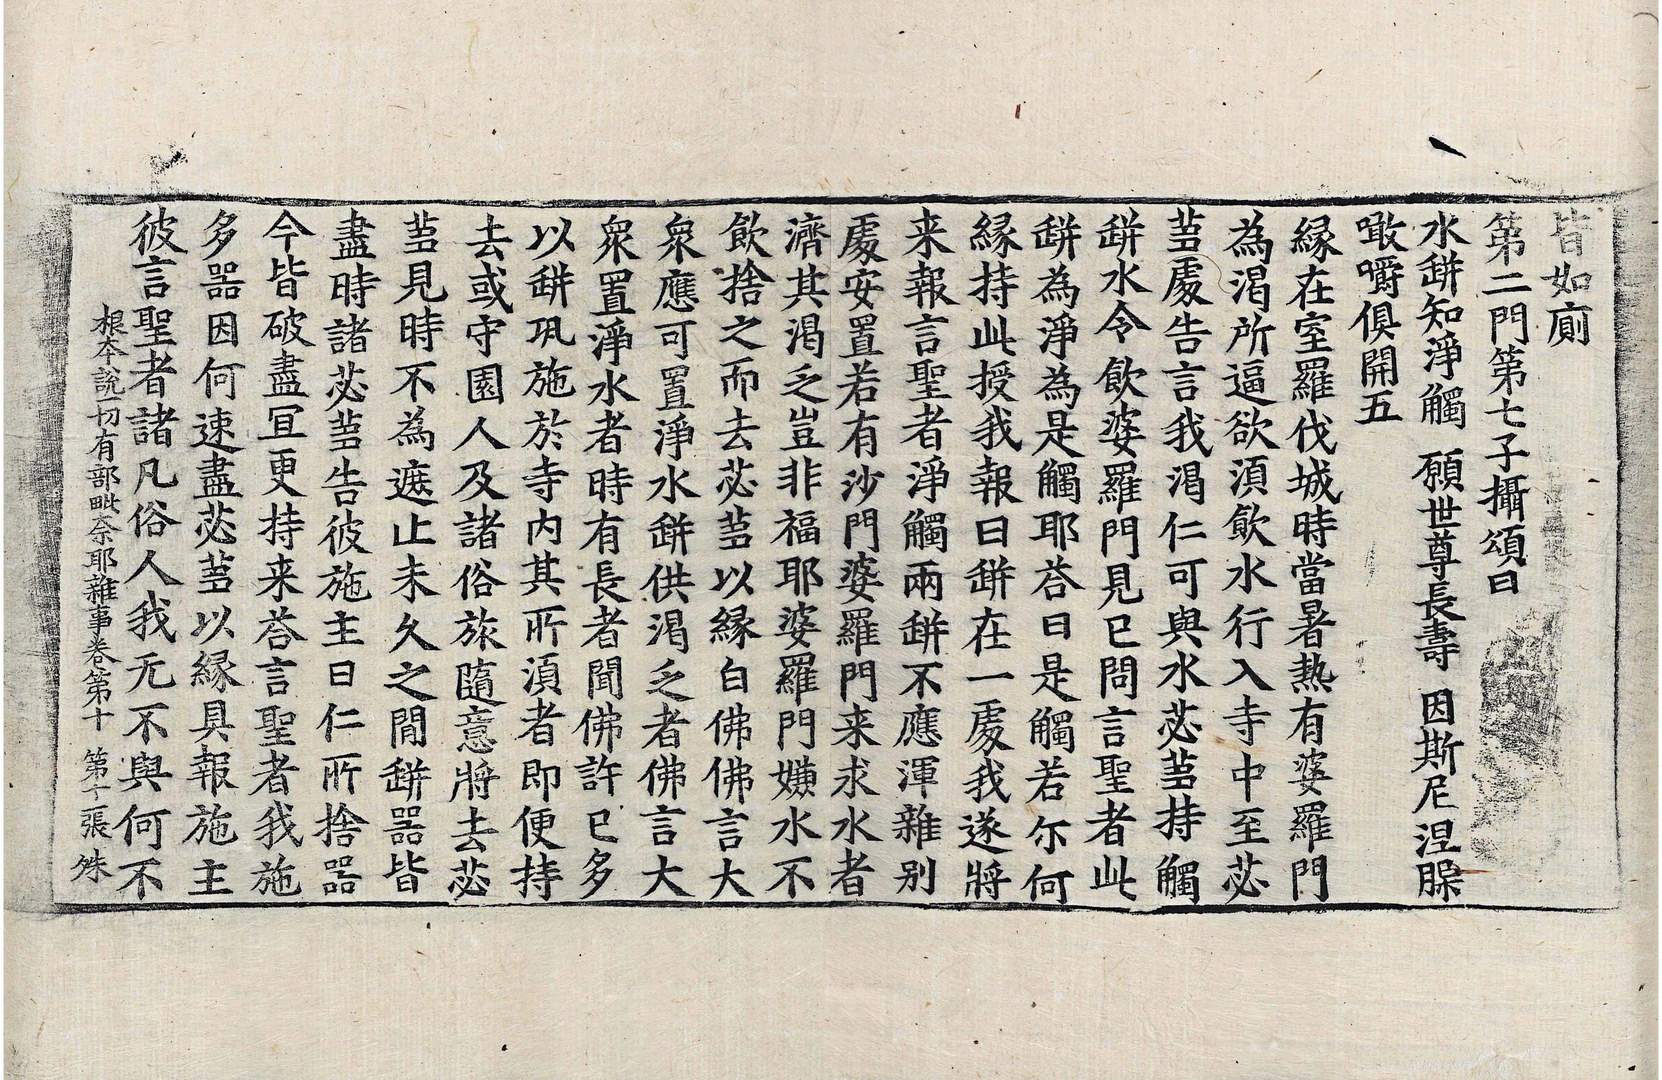 皆如廁
第二門第七子攝頌曰
水缾知淨觸 願世尊長壽 因斯尼涅槃
噉嚼俱開五
緣在室羅伐城時當暑熱有婆羅門
為渴所逼欲湏飲水行入寺中至苾
蒭處告言我渴仁可與水苾蒭持觸
缾水令飲婆羅門見已問言聖者此
缾為淨為是觸耶荅曰是觸若尒何
緣持此授我報曰缾在一處我遂將
来報言聖者淨觸兩缾不應渾雜別
處安置若有沙門婆羅門来求水者
濟其渴乏豈非福耶婆羅門嫌水不
飲捨之而去苾蒭以緣白佛佛言大
衆應可置淨水缾供渴乏者佛言大
衆置淨水者時有長者聞佛許已多
以缾瓨施於寺內其所湏者即便持
去或守園人及諸俗旅隨意將去苾
蒭見時不為遮止未久之間缾器皆
盡時諸苾蒭告彼施主曰仁所捨器
今皆破盡冝更持来荅言聖者我施
多器因何速盡苾蒭以緣具報施主
彼言聖者諸凡俗人我无不與何不
根本說一切有部毗奈耶雜事卷第十 第十張 殊